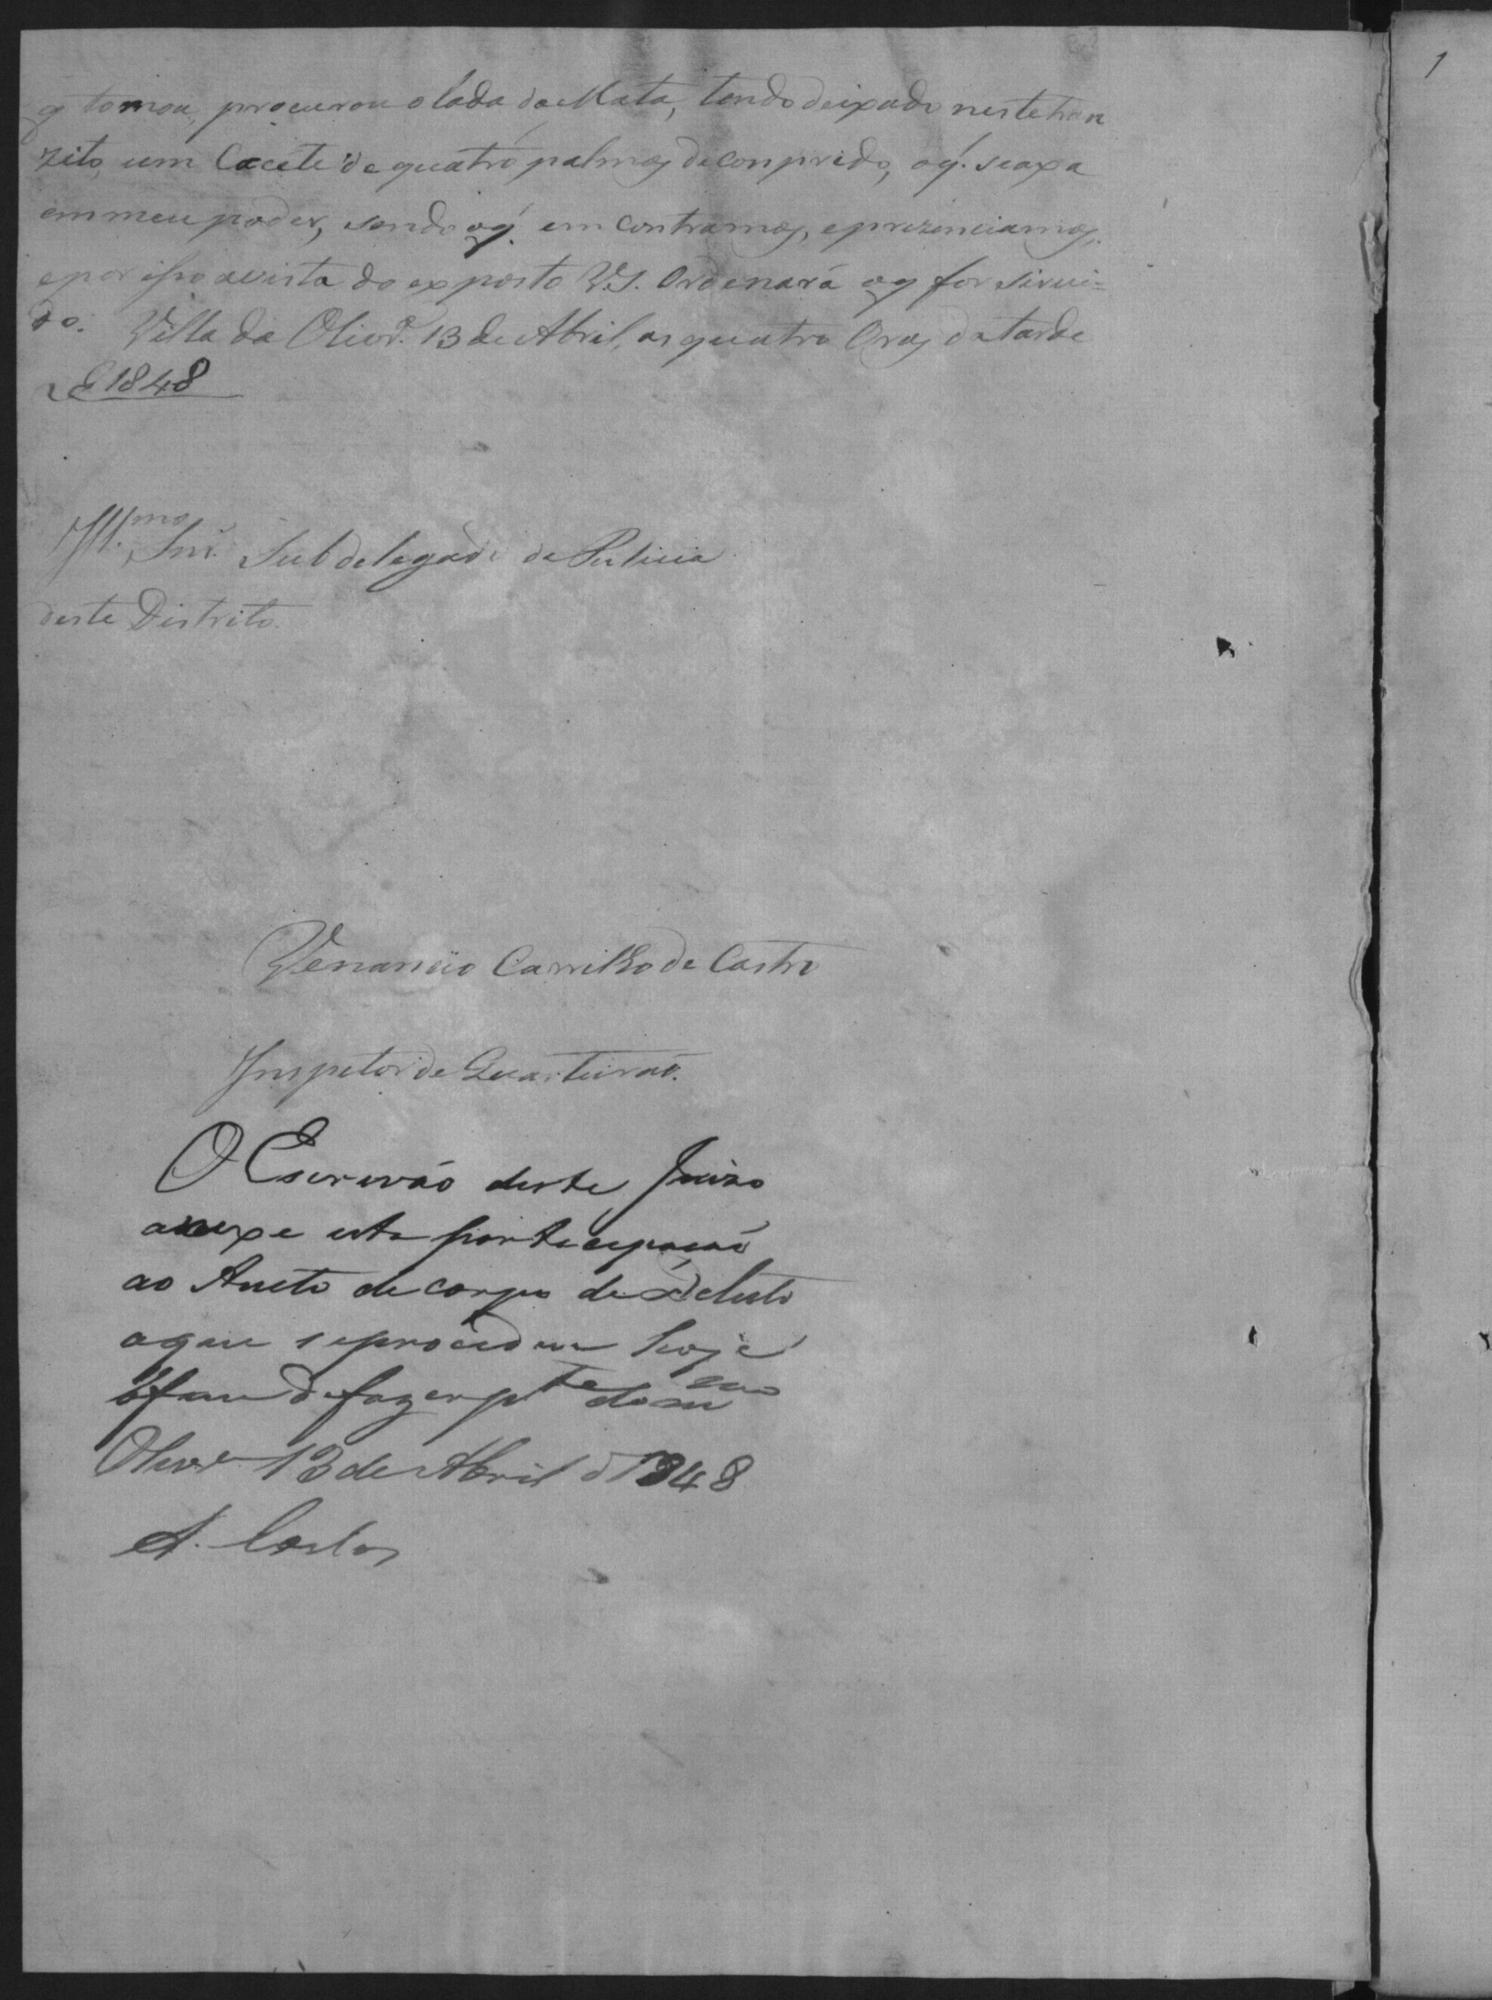 q̃ tomou, procurou o lado da Mata, tendo deixado neste tran
zito, um Cacete de quatro palmos de conprido, oq̃. seaxa
em meu poder, sendo oq̃. em contramos, eprezenciamos,
epor isso avista do exposto V.S. Ordenará oq̃ for sirvi=
do. Villa da Olivrª. 13 de Abril, as quatro Oras da tarde
de 1848
Ill.mo Snr. Subdelegado da Pulicia
deste Distrito.
Venancio Carrilho de Castro
Inspetor de Quarteirão.
O Escrivão deste Juizo
anexe esta partecipação
ao Aucto de corpo de Delicto
aque seprocedeu hoje
afim de fazer pte do
Olivrª 13 de Abril d 1848